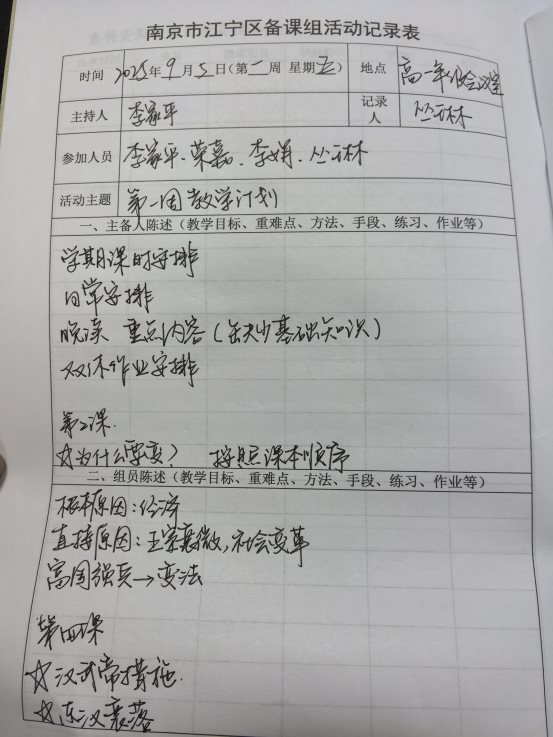 南京市江宁区备课组活动记录表
时间 2025年9月5日(第一周 星期五) 地点 高一年级会议室
主持人 李家平 记录人 丛林
参加人员 李家平、荣嘉、李娟、丛林
活动主题 第一周教学计划
一、主备人陈述(教学目标、重难点、方法、手段、练习、作业等)
学期课时安排
日常安排
晚读 重点内容(缺少基础知识)
双休作业安排
第2课
☆为什么要变? 按照课本顺序
二、组员陈述(教学目标、重难点、方法、手段、练习、作业等)
根本原因:经济
直接原因:王室衰微,社会变革
富国强兵→变法
第四课
☆汉武帝措施
☆东汉衰落